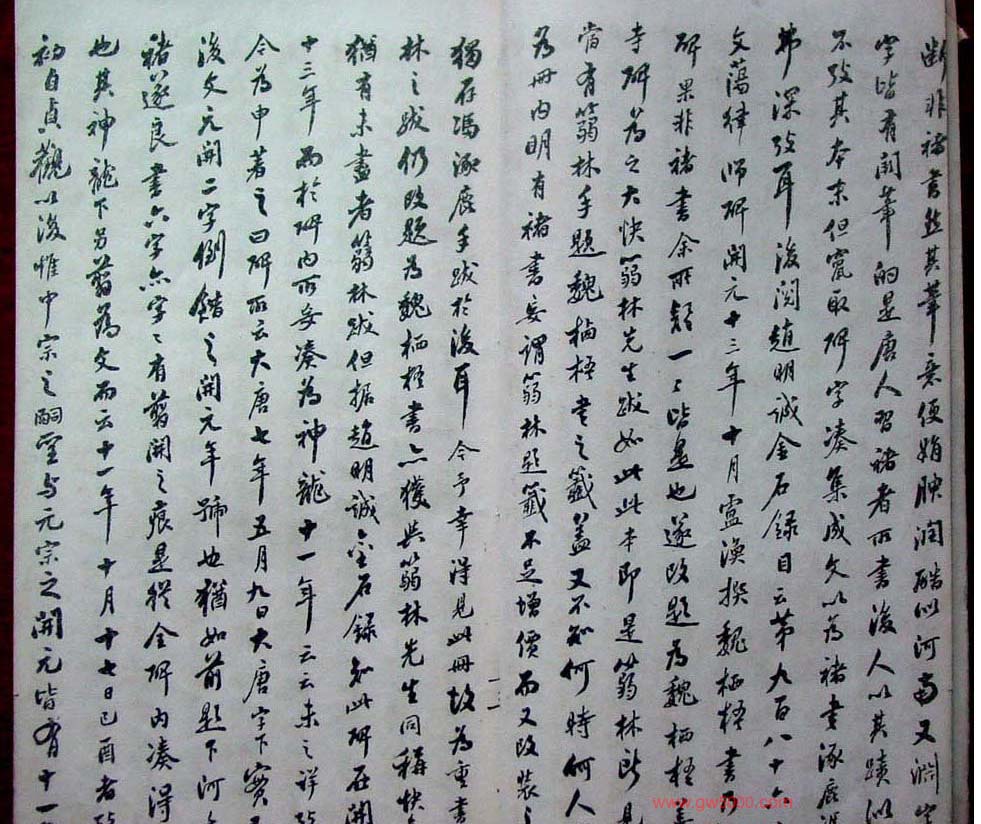 断非褚書然其筆意便娟腴润酷似河南又渊字
字皆有闕筆的是唐人習褚者所書後人以其蹟似
不攷其本末但竄取碑字凑集成文以為褚書涿鹿
弗深攷耳後閲趙明誠金石録目云第九百八十六
文蕩律師碑開元十三年十月盧涣撰魏栖梧書
碑果非褚書余所疑一々皆是也遂改題為魏栖梧善
寺碑為之大快蒻林先生跋如此此本即是蒻林所見
當有蒻林手題魏栖梧書之籤蓋又不知何時何人
為冊内明有褚書妄謂蒻林題籤不足增價而又改装
獨存馮涿鹿手跋於後耳今予幸得見此冊故為重書
林之跋仍改題為魏栖梧書亦獲與蒻林先生同稱快
猶有未盡者蒻林跋但据趙明誠金石録知此碑在開
十三年而於碑内所妄凑為神龍十一年云云未之詳
今為申著之曰碑所云大唐七年五月九日大唐字下實
後文元開二字倒錯之開元年號也猶如前題下河
褚遂良書六字亦字々有翦開之痕是從全碑内凑得
也其神龍下另翦為文而云十一年十月十七日己酉者
初自貞觀以後惟中宗之嗣聖与元宗之開元皆有十一
www.gw3000.com